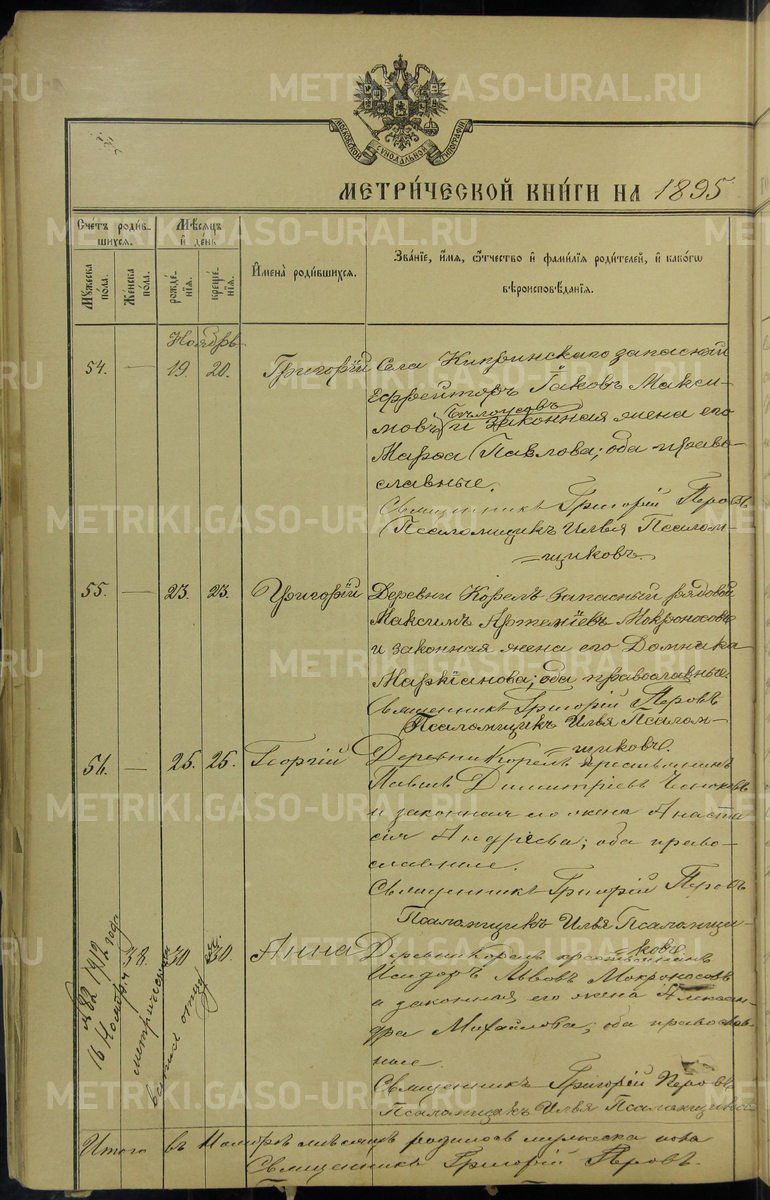 METRIKI.GASO-URAL.RU
МОСКОВСКОЙ СѴНОДАЛЬНОЙ ТИПОГРАФІИ
МЕТРИ́ЧЕСКОЙ КНИ́ГИ НА 1895
Сче́тъ роди́в-
шихся.
Мѣ́сяцъ
и҆ де́нь
Му́жеска
по́ла.
Же́нска
по́ла.
рожде́-
нїѧ.
креще́-
нїѧ.
И҆мена̀ роди́вшихся.
Зва́нїе, и҆́мѧ, ѻ҆́тчество и҆ фами́лїѧ роди́телей, и҆ како́гѡ
вѣроисповѣ́данїѧ.
Ноябрь
54. — 19. 20. Григорій Села Кипринскаго запасный
Ефрейторъ Іаковъ Макси-
Бѣлоусовъ
мовъ и законная жена его
Марѳа Павлова; оба право-
славные.
Священникъ Григорій Перовъ
Псаломщикъ Илья Псалом-
щиковъ.
55. — 23. 23. Григорій Деревни Корелъ запасный рядовой
Максимъ Артеміевъ Мокроносовъ
и законная жена его Домника
Маркіанова; оба православные.
Священникъ Григорій Перовъ
Псаломщикъ Илья Псалом-
щиковъ.
56. — 25. 25. Георгій Деревни Корелъ крестьянинъ
Павелъ Димитріевъ
и законная его жена Анаста-
сія Андреева; оба право-
славные.
Священникъ Григорій Перовъ
Псаломщикъ Илья Псаломщи-
ковъ
38. 30 30. Анна Деревни Корелъ крестьянинъ
Исидоръ Львовъ Мокроносовъ
и законная его жена Алексан-
дра Михайлова; оба православ-
ные
Священникъ Григорій Перовъ
Псаломщикъ Илья Псаломщиковъ
№ 82 1912 года
16 Ноября
метрическая
отцу
Итого въ Ноябрѣ мѣсяцѣ родилось мужеска пола
Священникъ Григорій Перовъ.